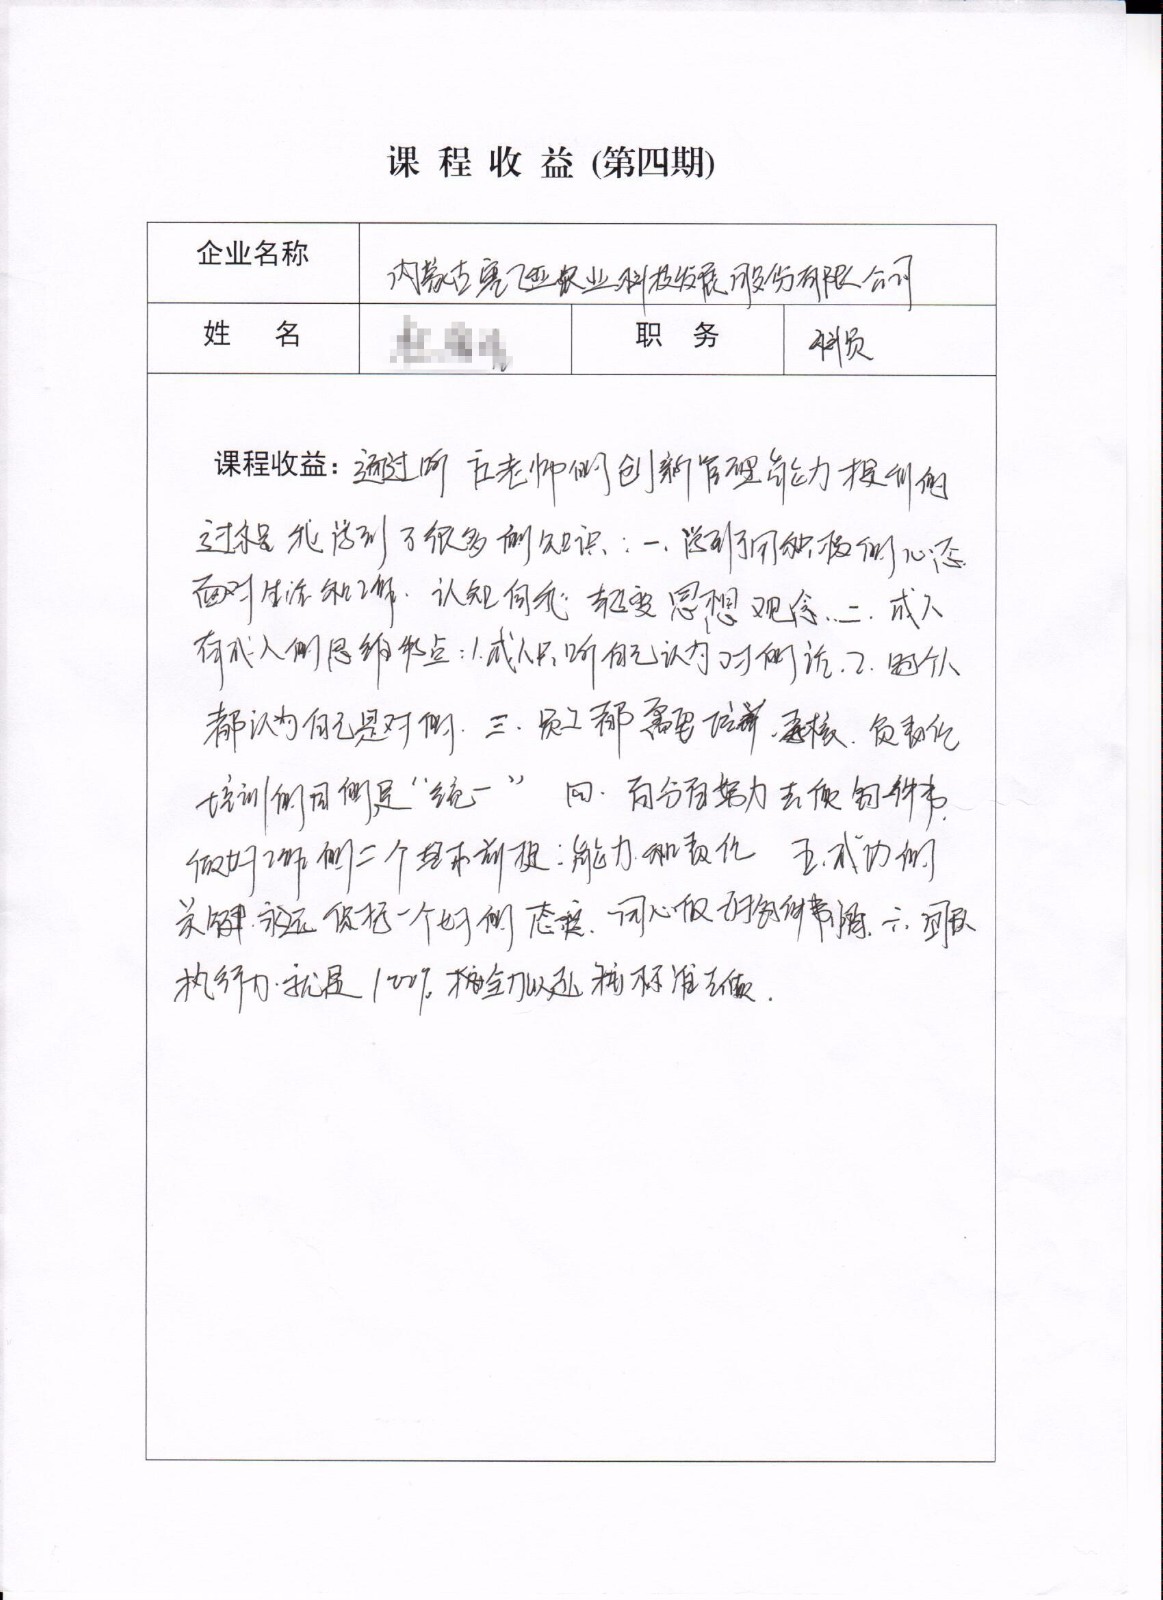 课 程 收 益 (第四期)
企业名称
内蒙古塞飞亚农业科技发展股份有限公司
姓 名
职 务
科员
课程收益：通过听 老师的创新管理能力提升的
过程我学到了很多的知识：一、学到了用积极的心态
面对生活和工作. 认知自我 转变思想观念.二.成人
有成人的思维特点：1.成人只听自己认为对的话.2.每个人
都认为自己是对的. 三.员工都需要培训、考核.
培训的目的是“统一” 四.百分百努力去做每件事.
做好工作的二个基本前提：能力和 五.成功的
关键.永远保持一个好的态度. 用心做好每件事情.六.
执行力.就是100%.按全力以赴 标准去做.